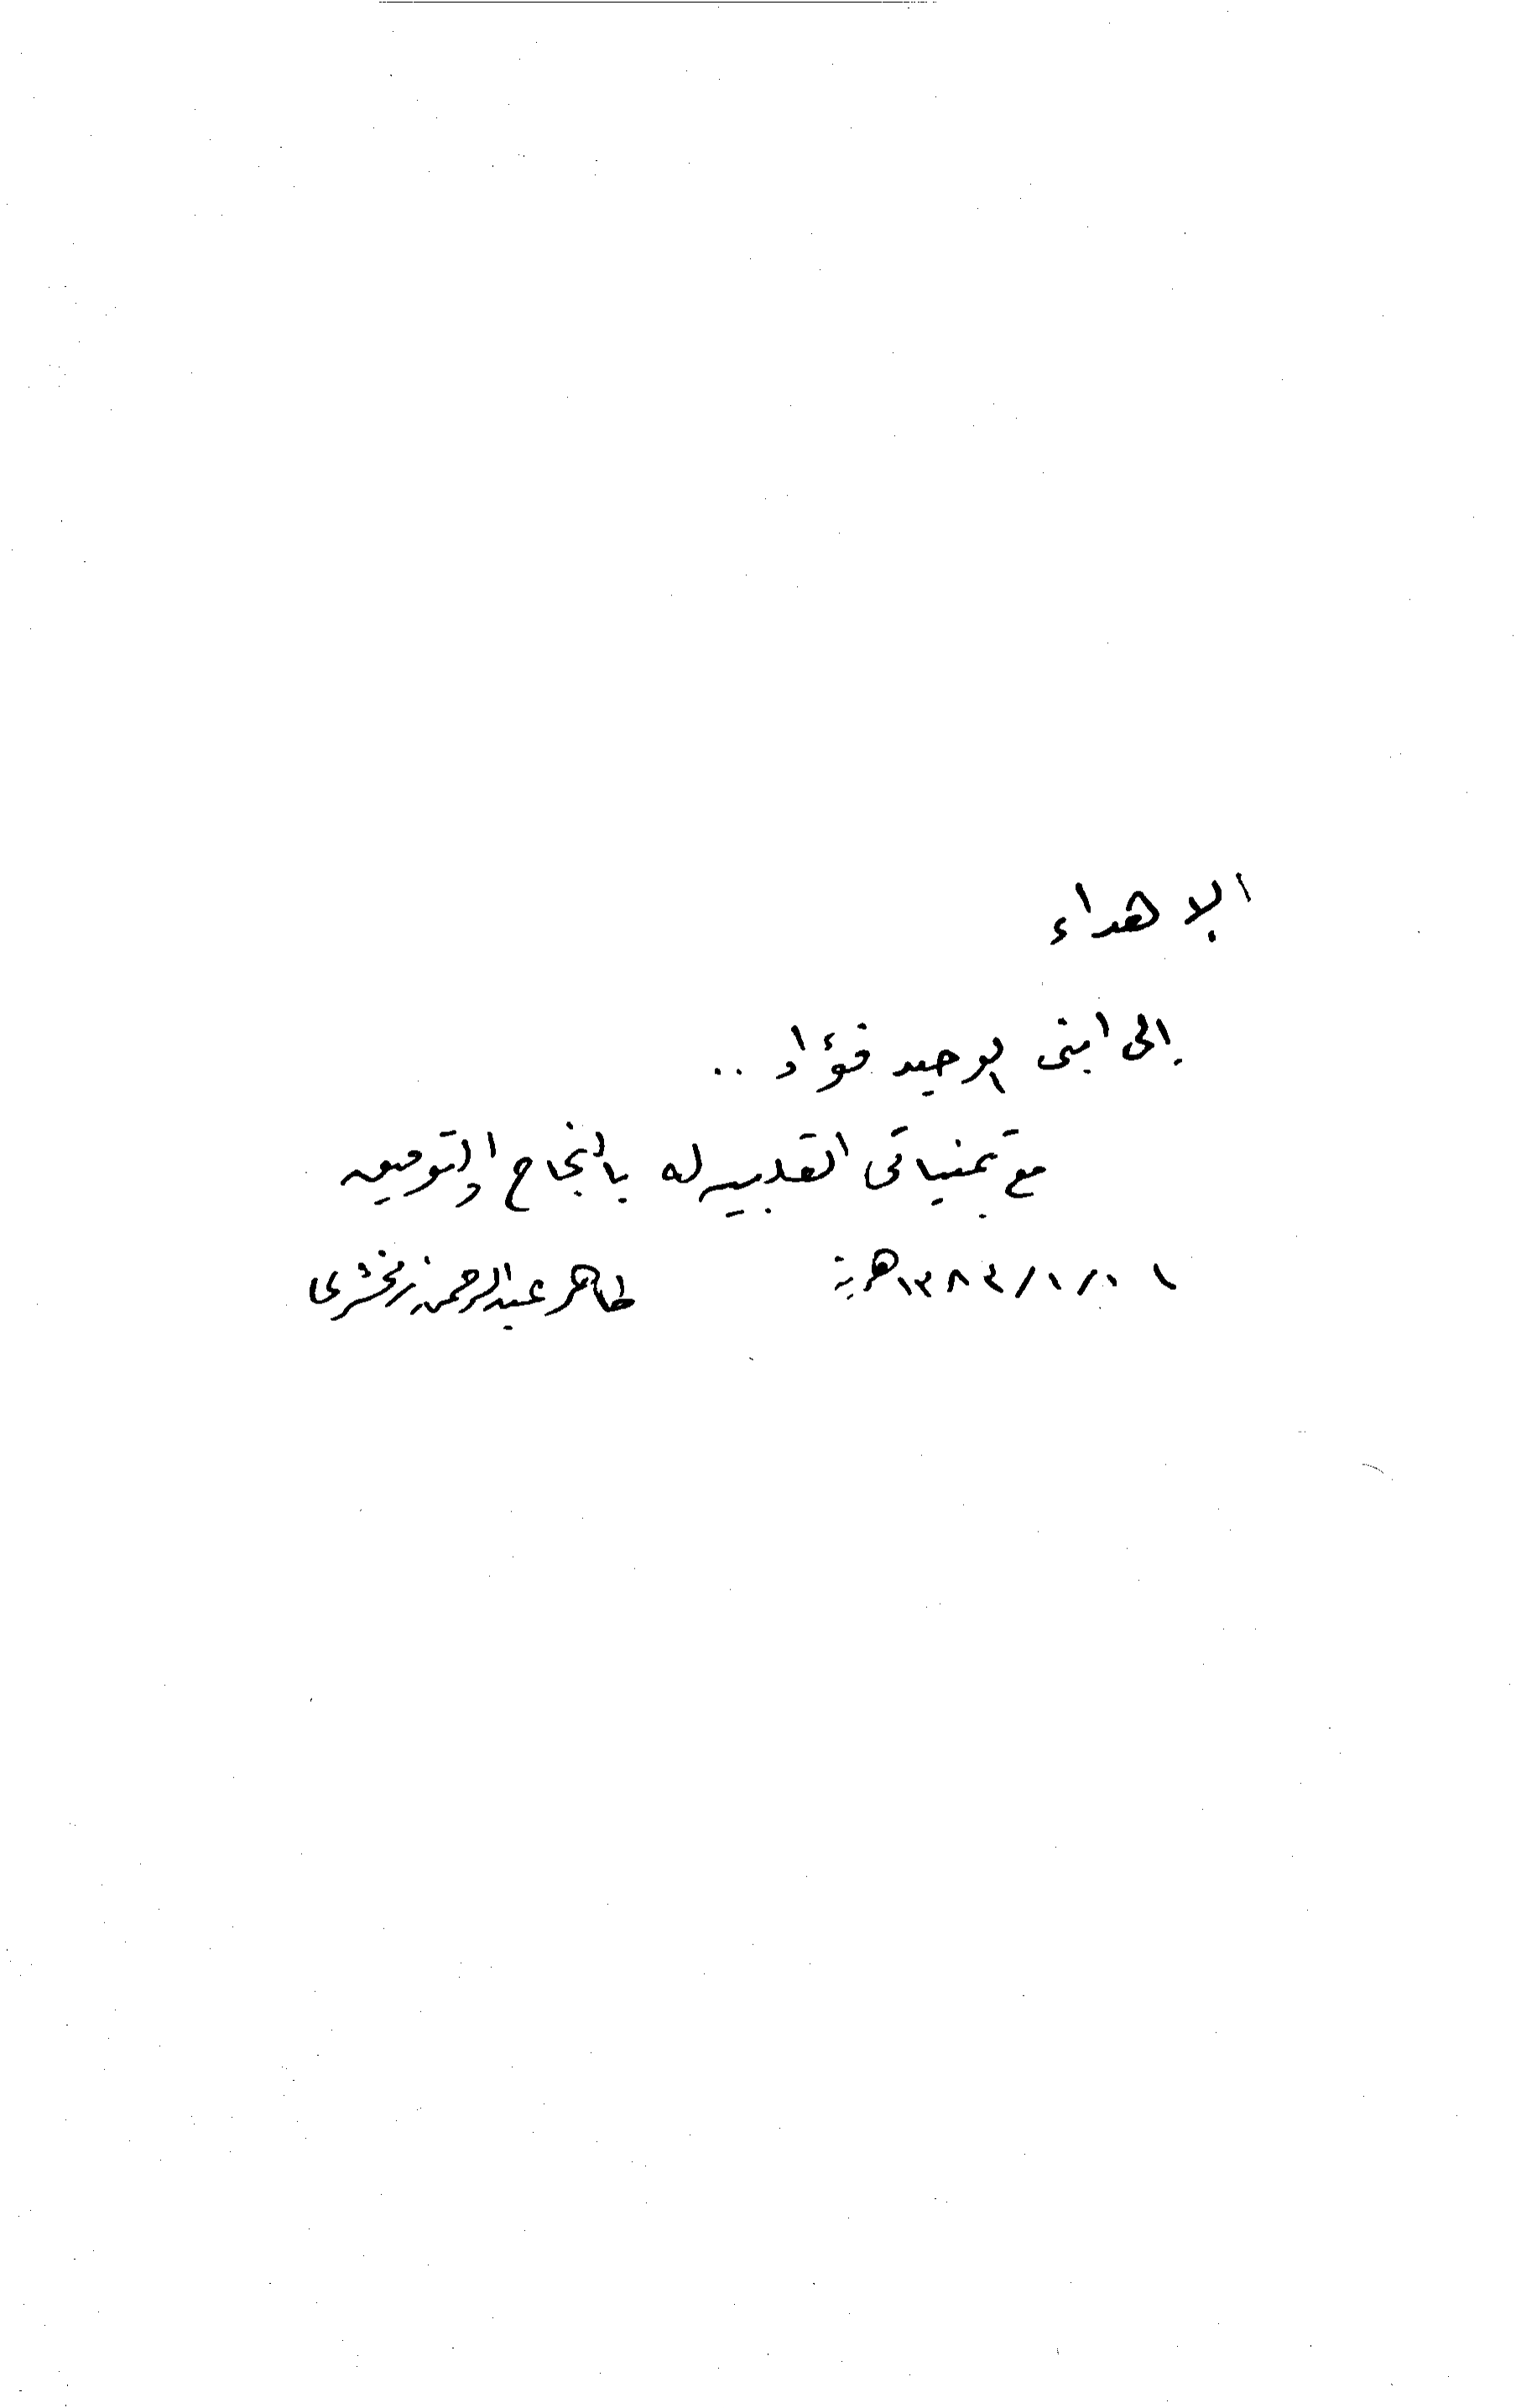 الإهداء
إلى ابنى الوحيد فؤاد ..
مع تمنياتى القلبيه له بالنجاح والتوفيق
١٣٨٤/١/١ هـ طاهر عبدالرحمن زمخشرى